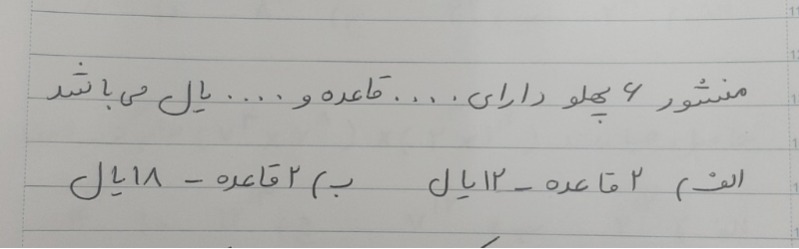 منشور ۶ پهلو دارای .... قاعده و .... یال می باشد
الف) ۲ قاعده - ۱۲ یال ب) ۲ قاعده - ۱۸ یال